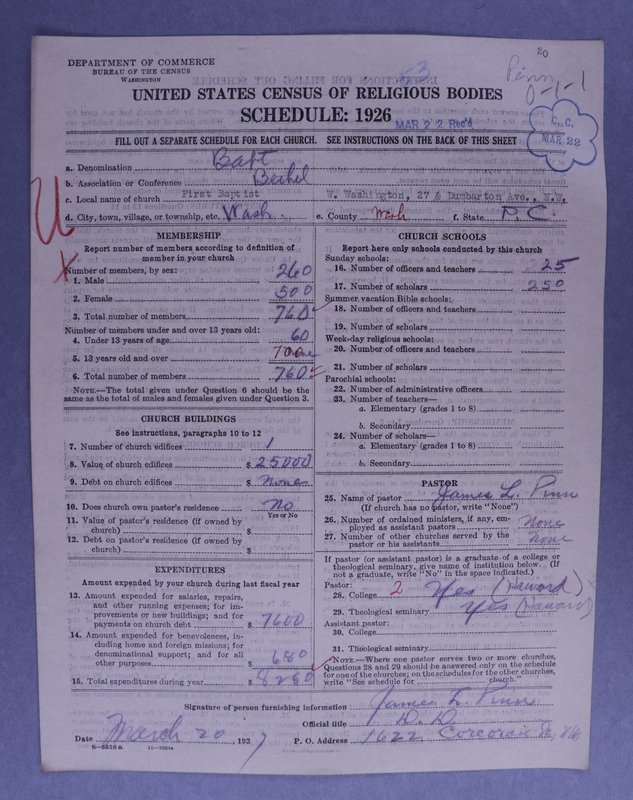 20
DEPARTMENT OF COMMERCE
BUREAU OF THE CENSUS
WASHINGTON
53
Penn
0-1-1
UNITED STATES CENSUS OF RELIGIOUS BODIES
SCHEDULE: 1926
MAR 22 Rec'd
C. C.
MAR 22
FILL OUT A SEPARATE SCHEDULE FOR EACH CHURCH. SEE INSTRUCTIONS ON THE BACK OF THIS SHEET
a. Denomination Bapt
b. Association or Conference Bethel
c. Local name of church First Baptist W. Washington, 27 & Dumbarton Ave., N.W.
d. City, town, village, or township, etc. Wash. e. County Wash f. State D.C.
MEMBERSHIP
Report number of members according to definition of
member in your church
Number of members, by sex:
1. Male 260
2. Female 500
3. Total number of members 760
Number of members under and over 13 years old:
4. Under 13 years of age 60
5. 13 years old and over 700
6. Total number of members 760
NOTE.—The total given under Question 6 should be the
same as the total of males and females given under Question 3.
CHURCH BUILDINGS
See instructions, paragraphs 10 to 12
7. Number of church edifices 1
8. Value of church edifices $ 25000
9. Debt on church edifices $ None
10. Does church own pastor's residence? No
Yes or No
11. Value of pastor's residence (if owned by
church) $
12. Debt on pastor's residence (if owned by
church) $
EXPENDITURES
Amount expended by your church during last fiscal year
13. Amount expended for salaries, repairs,
and other running expenses; for im-
provements or new buildings; and for
payments on church debt $ 7600
14. Amount expended for benevolences, in-
cluding home and foreign missions; for
denominational support; and for all
other purposes $ 680
15. Total expenditures during year $ 8280
CHURCH SCHOOLS
Report here only schools conducted by this church
Sunday schools:
16. Number of officers and teachers 25
17. Number of scholars 250
Summer vacation Bible schools:
18. Number of officers and teachers
19. Number of scholars
Week-day religious schools:
20. Number of officers and teachers
21. Number of scholars
Parochial schools:
22. Number of administrative officers
23. Number of teachers—
a. Elementary (grades 1 to 8)
b. Secondary
24. Number of scholars—
a. Elementary (grades 1 to 8)
b. Secondary
PASTOR
25. Name of pastor James L. Pinn
(If church has no pastor, write "None")
26. Number of ordained ministers, if any, em-
ployed as assistant pastors None
27. Number of other churches served by the
pastor or his assistants None
If pastor (or assistant pastor) is a graduate of a college or
theological seminary, give name of institution below. (If
not a graduate, write "No" in the space indicated.)
Pastor:
28. College 2 Yes (Howard)
29. Theological seminary Yes (Howard)
Assistant pastor:
30. College
31. Theological seminary
NOTE.—Where one pastor serves two or more churches,
Questions 28 and 29 should be answered only on the schedule
for one of the churches; on the schedules for the other churches,
write "See schedule for church."
Signature of person furnishing information James L. Pinn
Official title D.D.
Date March 20, 1937 P. O. Address 1622 Corcoran St. NW
8-5518a